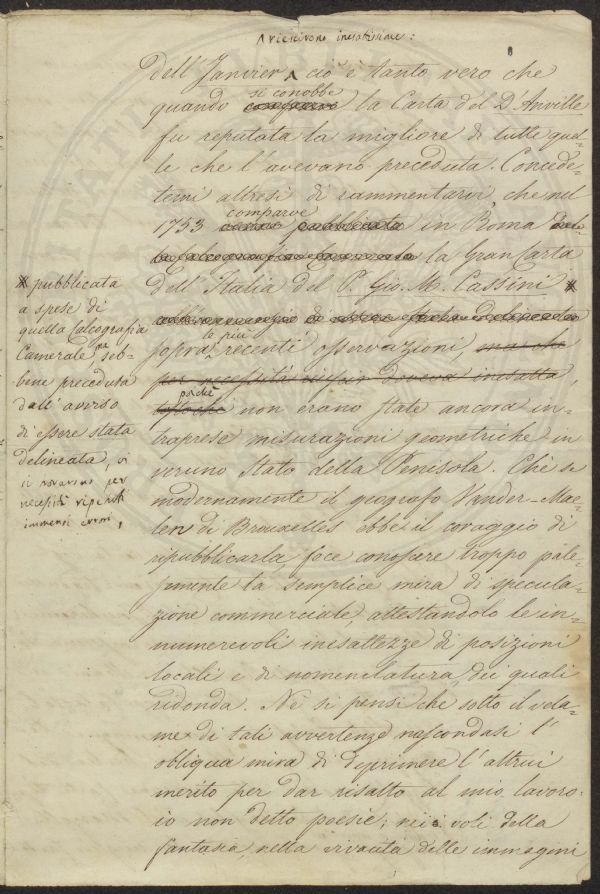 riescirono inesattissime:
dell'Janvier, ciò è tanto vero che
si conobbe
quando la Carta del D'Anville
fu reputata la migliore di tutte quel-
le che l'avevano preceduta. Concede-
temi altresì di rammentarvi, che nel
comparve
1753 pubblicata in Roma
la Gran Carta
dell'Italia del P. Gio. M. Cassini *
* pubblicata
a spese di
quella Calcografia
Camerale, seb-
bene preceduta
dall'avviso
di essere stata
delineata,
si trovarono per
necessità ripetuti
immensi errori,
le più
sopra recenti osservazioni, ma che
per necessità doveva inesatta,
poichè
tostochè non erano state ancora in-
traprese misurazioni geometriche in
veruno Stato della Penisola. Chè se
modernamente il geografo Vander-Mae-
len di Brouxelles ebbe il coraggio di
ripubblicarla, fece conoscere troppo pale-
semente la semplice mira di specula-
zione commerciale, attestandolo le in-
numerevoli inesattezze di posizioni
locali e di nomenclatura, dei quali
ridonda. Nè si pensi che sotto il vela-
me di tali avvertenze nascondasi l'
obliqua mira di deprimere l'altrui
merito per dar risalto al mio lavoro:
io non detto poesie; nei voli della
fantasia, nella vivacità delle immagini